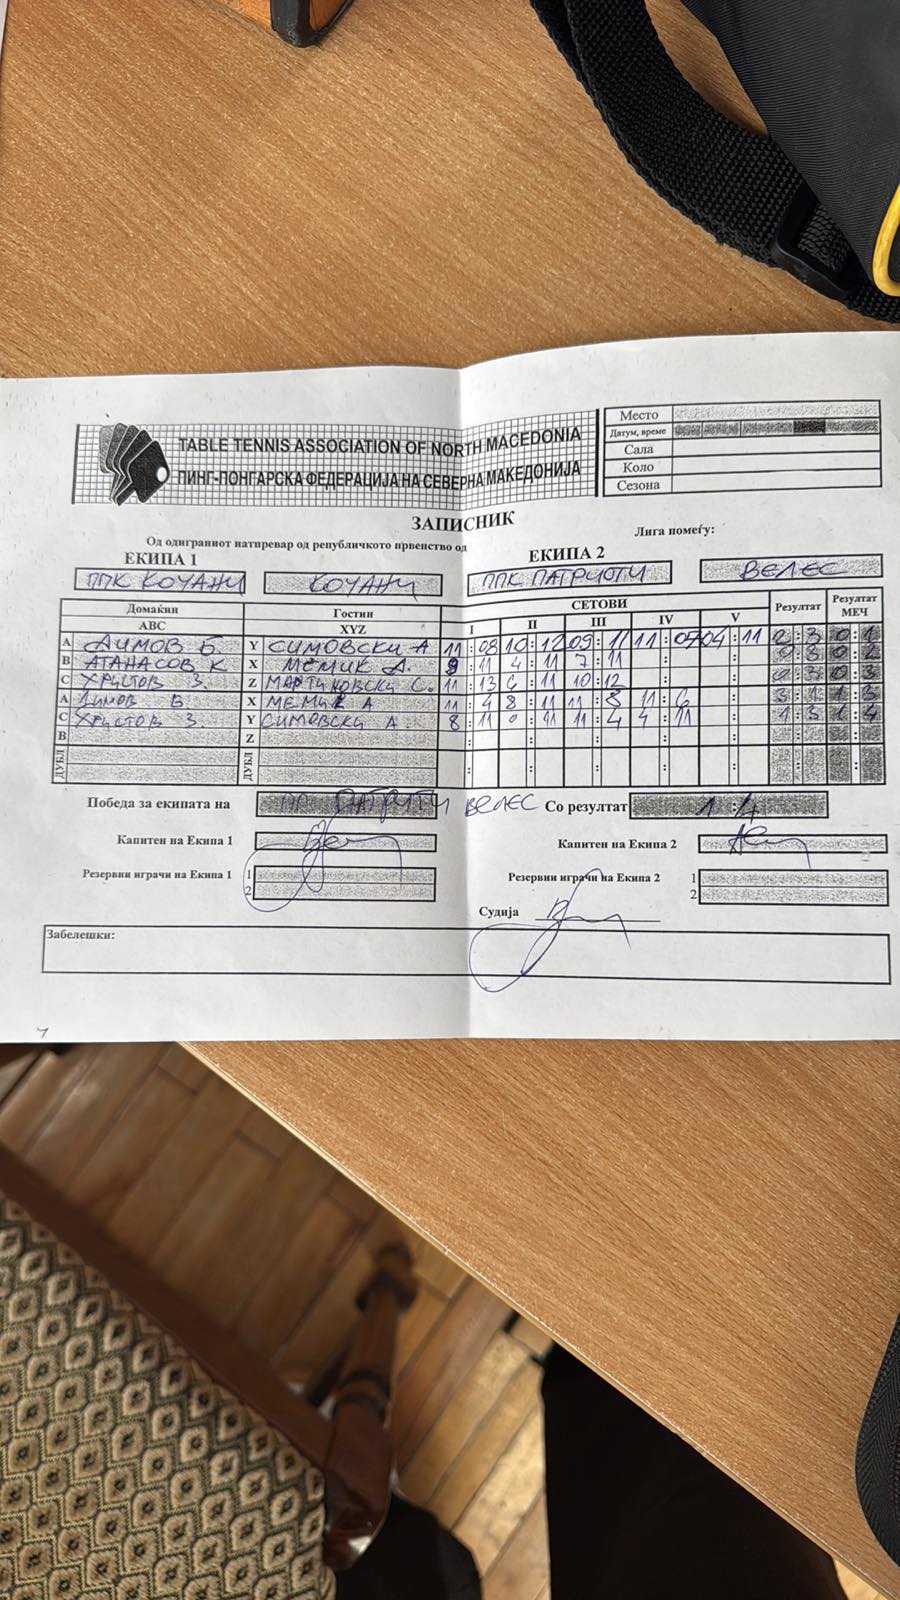 TABLE TENNIS ASSOCIATION OF NORTH MACEDONIA
ПИНГ-ПОНГАРСКА ФЕДЕРАЦИЈА НА СЕВЕРНА МАКЕДОНИЈА
Место
Датум, време
Сала
Коло
Сезона
ЗАПИСНИК
Од одиграниот натпревар од републичкото првенство од
Лига помеѓу:
ЕКИПА 1
ЕКИПА 2
ППК КОЧАНИ КОЧАНИ ППК ПАТРИОТИ ВЕЛЕС
Домаќин Гостин СЕТОВИ Резултат Резултат МЕЧ
ABC XYZ I II III IV V
A ДИМОВ Б. Y СИМОВСКИ А 11:08 10:12 09:11 11:07 04:11 2:3 0:1
B АТАНАСОВ К X МЕМИК А. 9:11 4:11 7:11 : : 0:3 0:2
C ХРИСТОВ З. Z МАРТИНОВСКИ С. 11:13 6:11 10:12 : : 0:3 0:3
A ДИМОВ Б X МЕМИК А 11:4 8:11 11:8 11:6 : 3:1 1:3
C ХРИСТОВ З. Y СИМОВСКИ А 8:11 11:4 4:11 1:3 1:4
B Z : : : : : : :
ДУБЛ ДУБЛ : : : : : : :
Победа за екипата на ПАТРИОТИ ВЕЛЕС Со резултат 1:4
Капитен на Екипа 1
Капитен на Екипа 2
Резервни играчи на Екипа 1 1
2
Резервни играчи на Екипа 2 1
2
Судија
Забелешки: